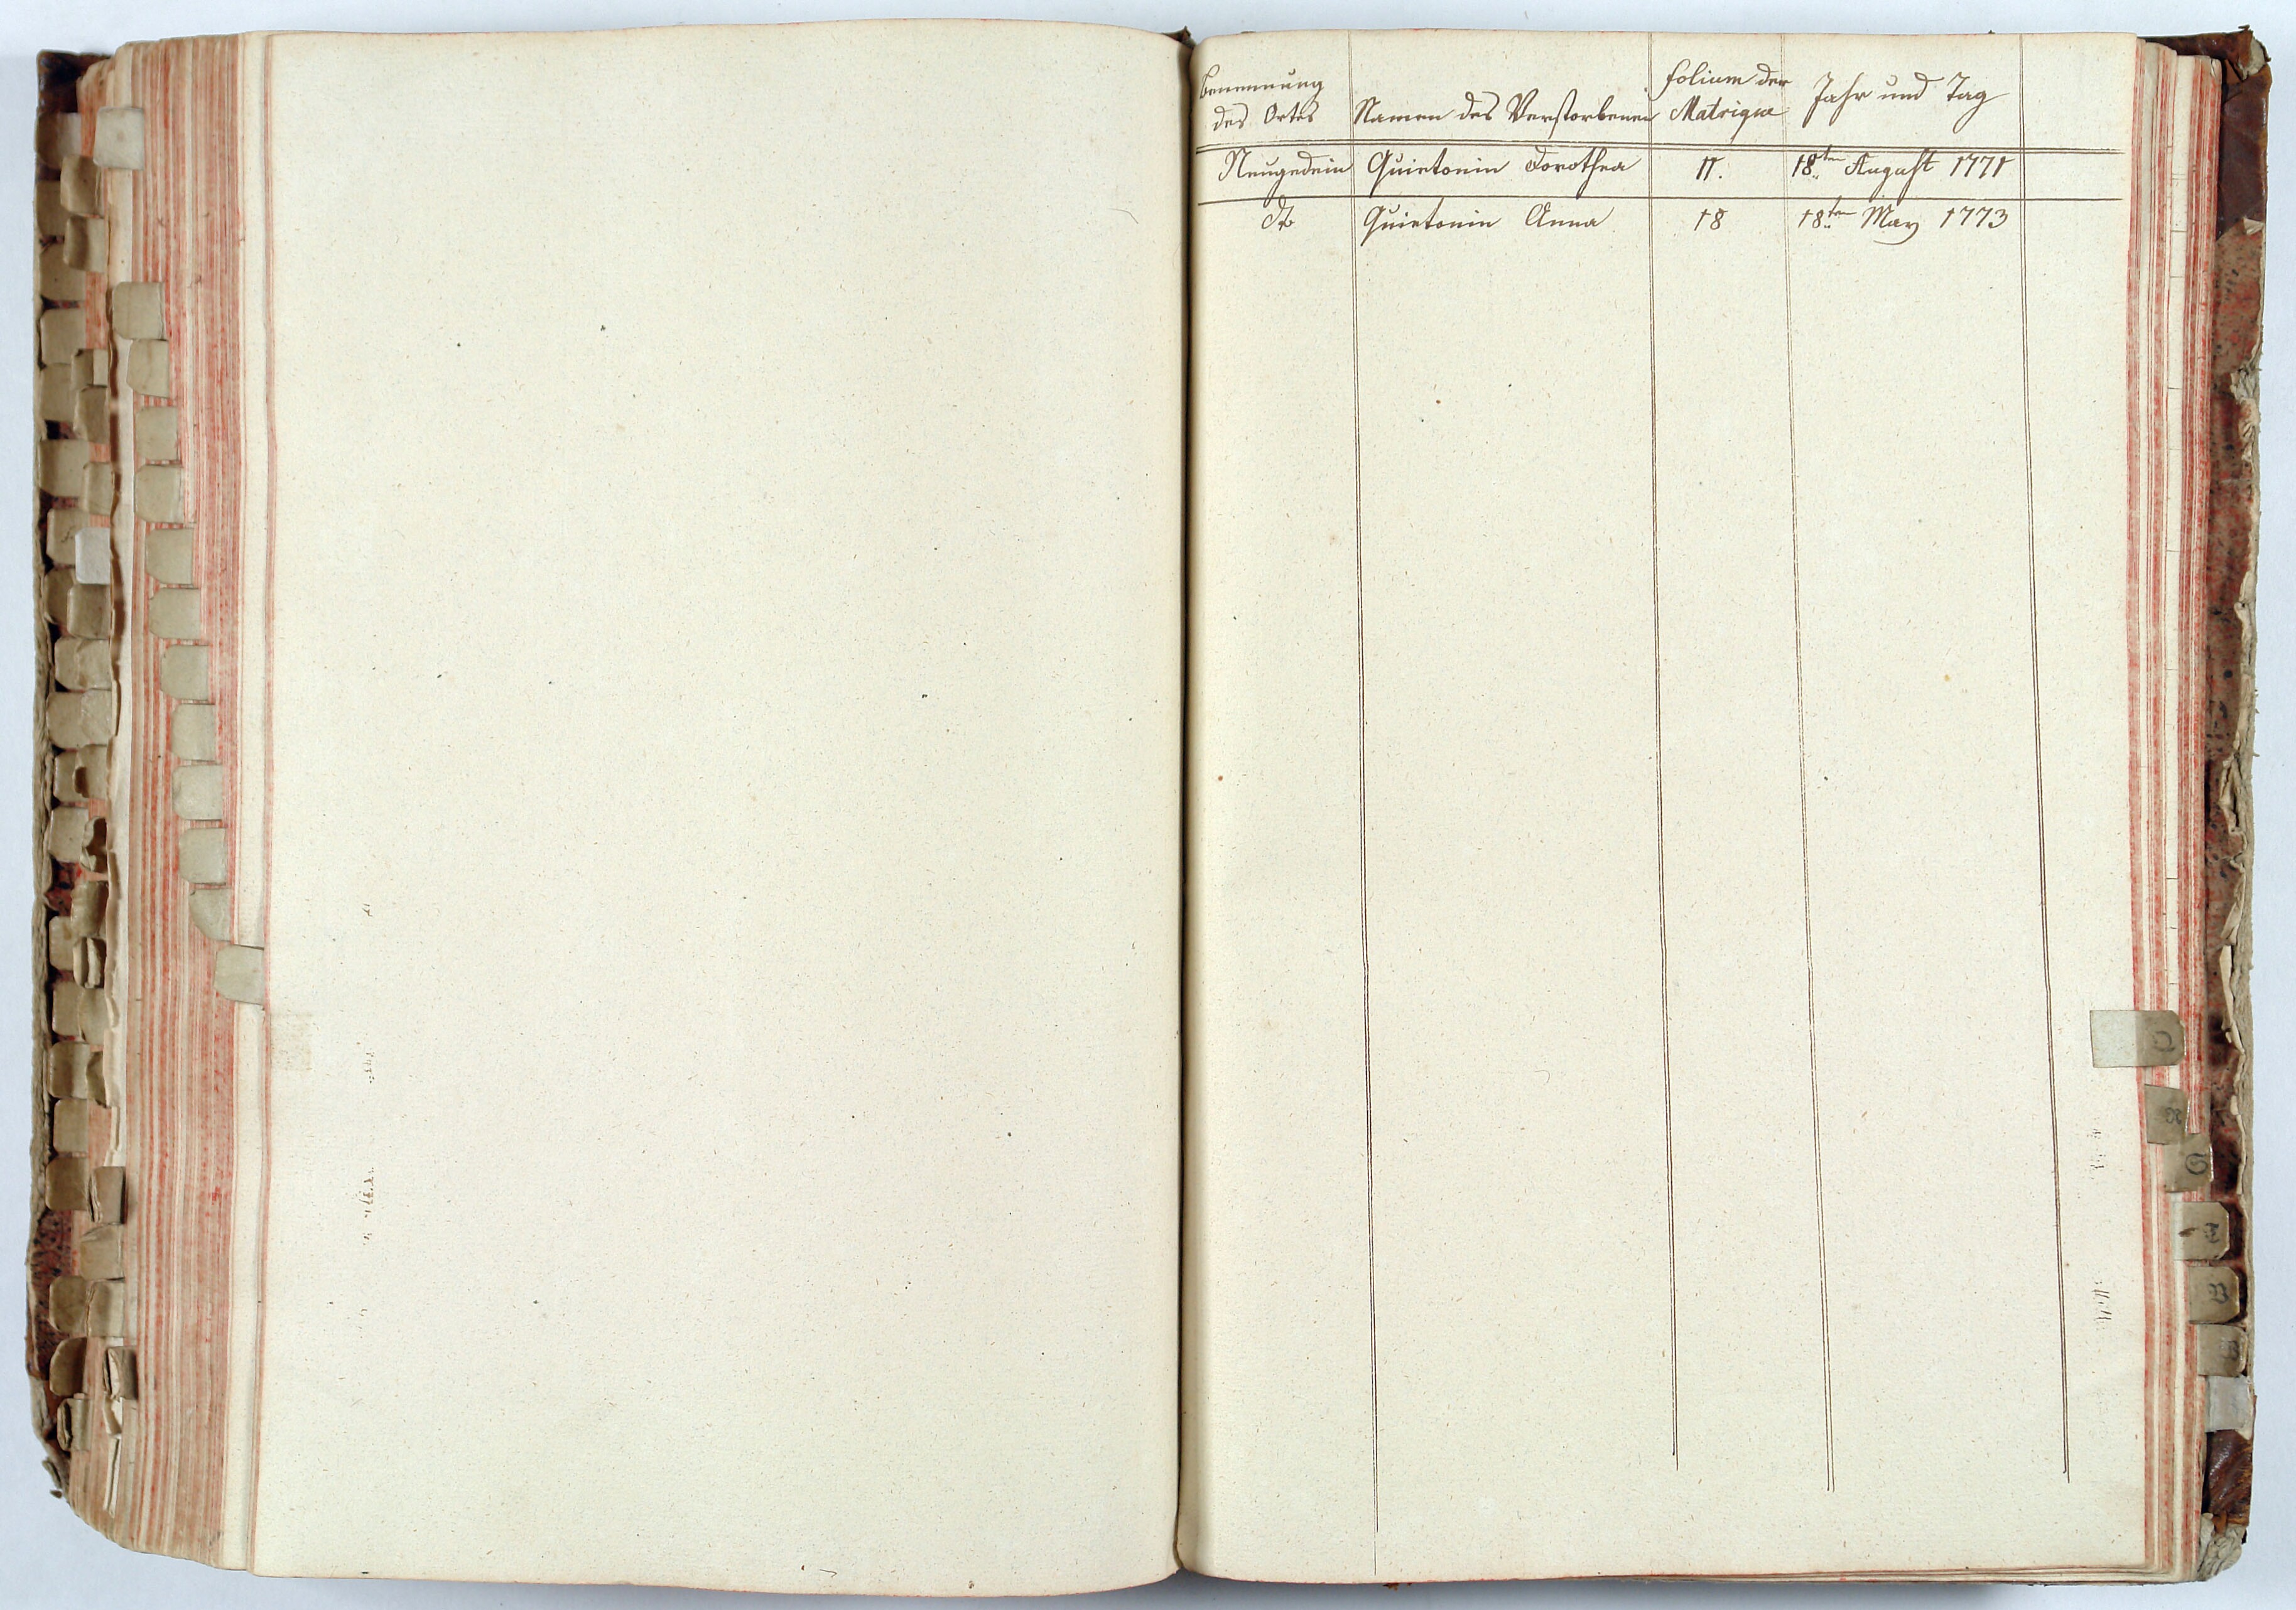 Benennung des Ortes
Namen des Verstorbenen
folium der Matrique
Jahr und Tag
Neugedein Quietonin Dorothea 11. 18ten August 1771
dto Quietonin Anna 18 18ten May 1773